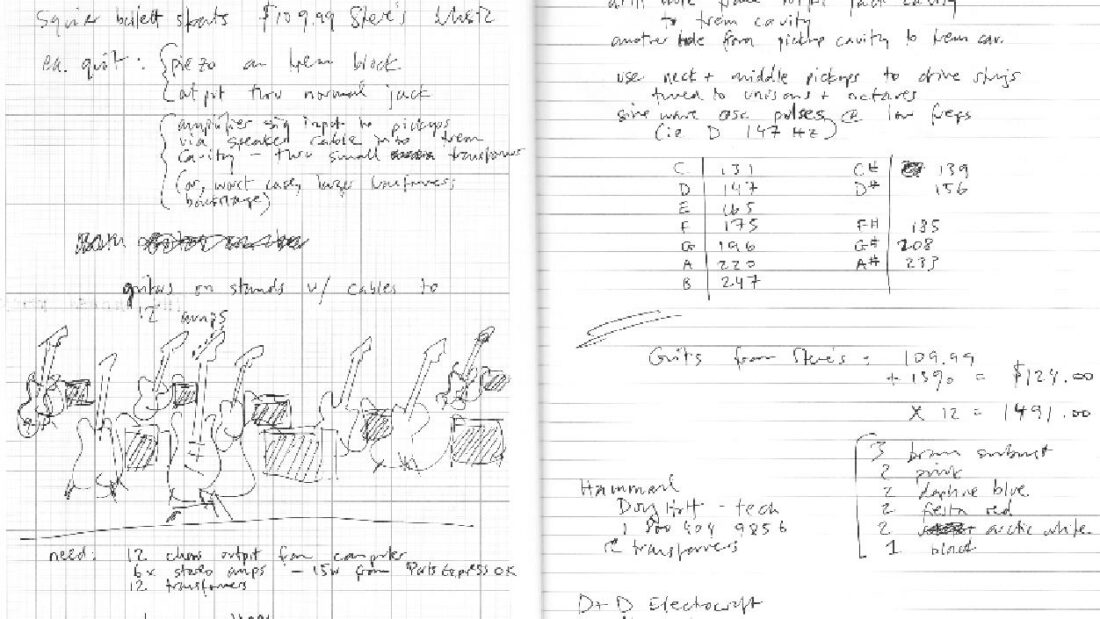 Squier bullet strats $109.99 Steve's
ea. guit: piezo on trem block
output thru normal jack
amplifier sig input to pickups
via speaker cable into trem
cavity – two small transformers
(or, worst case, larger transformers
backstage)
guitars on stands w/ cables to
12 amps
need: 12 chans output from computer
6x stereo amps – 15w from Parts Express OK
12 transformers
drill hole from output jack cavity
to trem cavity
another hole from pickup cavity to trem cav.
use neck + middle pickups to drive strings
tuned to unisons + octaves
sine wave osc pulses @ low freqs
(ie D 147 Hz)
C 131 C# 139
D 147 D# 156
E 165
F 175 F# 185
G 196 G# 208
A 220 A# 233
B 247
Guits from Steve's: 109.99
+ 13% = $124.00
x 12 = 1491.00
3 brown sunburst
2 pink
2 daphne blue
2 fiesta red
2 arctic white
1 black
Hammond
Doug Hott – tech
1 800 404 9856
re transformers
D+D Electrocraft